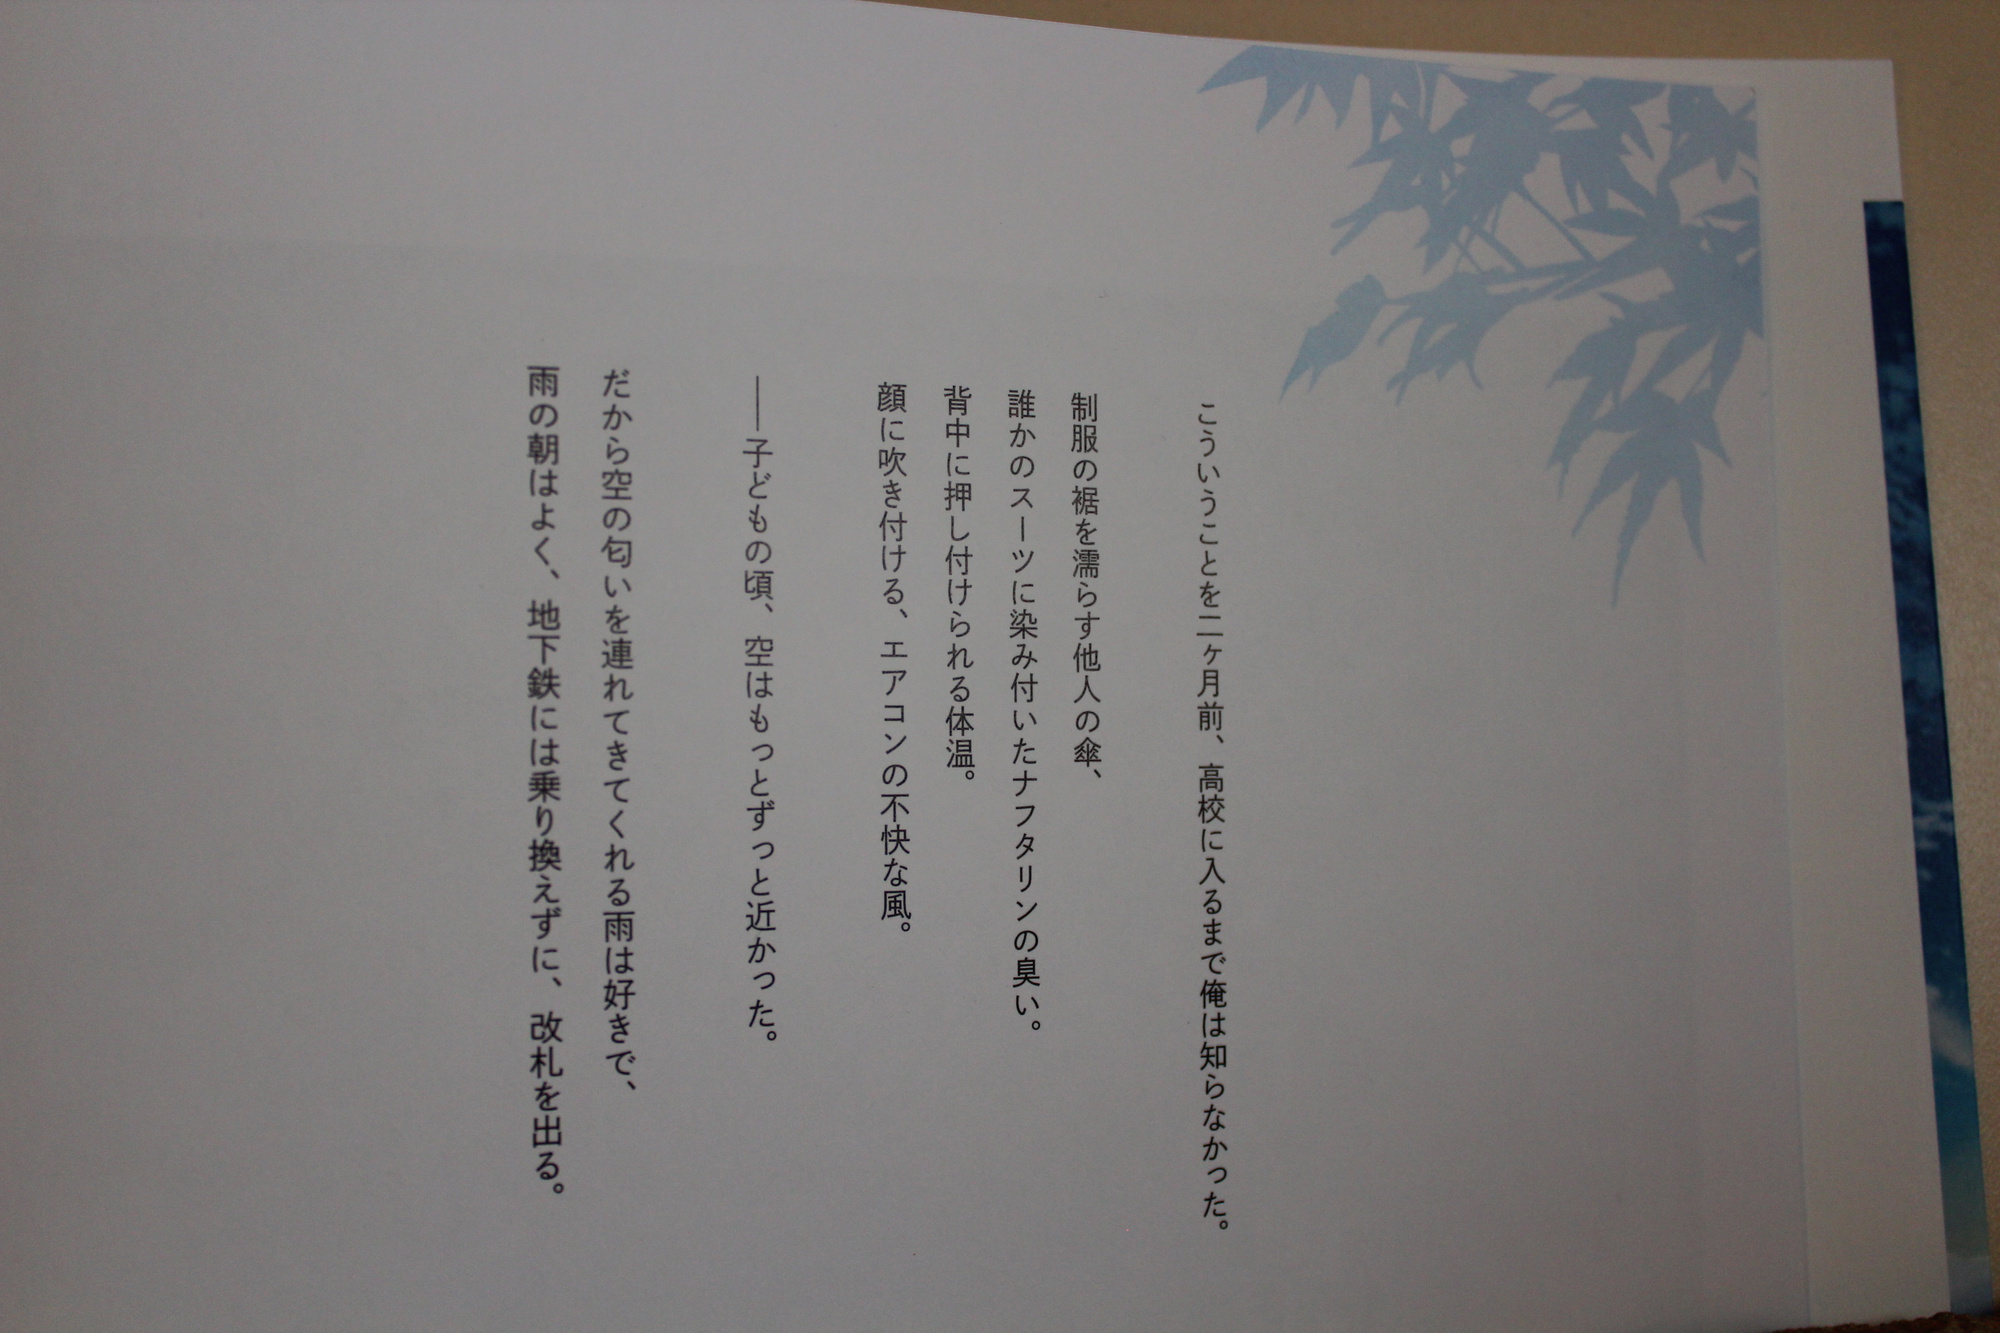 こういうことを二ヶ月前、高校に入るまで俺は知らなかった。
制服の裾を濡らす他人の傘、
誰かのスーツに染み付いたナフタリンの臭い。
背中に押し付けられる体温。
顔に吹き付ける、エアコンの不快な風。
――子どもの頃、空はもっとずっと近かった。
だから空の匂いを連れてきてくれる雨は好きで、
雨の朝はよく、地下鉄には乗り換えずに、改札を出る。